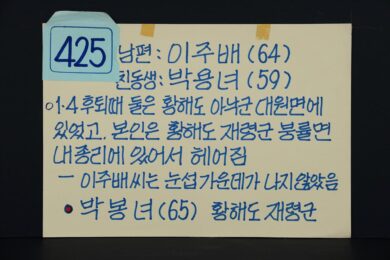 425
남편: 이주배 (64)
친동생: 박용녀 (59)
○1·4 후퇴때 둘은 황해도 안낙군 대원면에
있었고. 본인은 황해도 재령군 붕률면
내종리에 있어서 헤어짐
— 이주배씨는 눈썹 가운데가 나지않았음
• 박봉녀 (65) 황해도 재령군